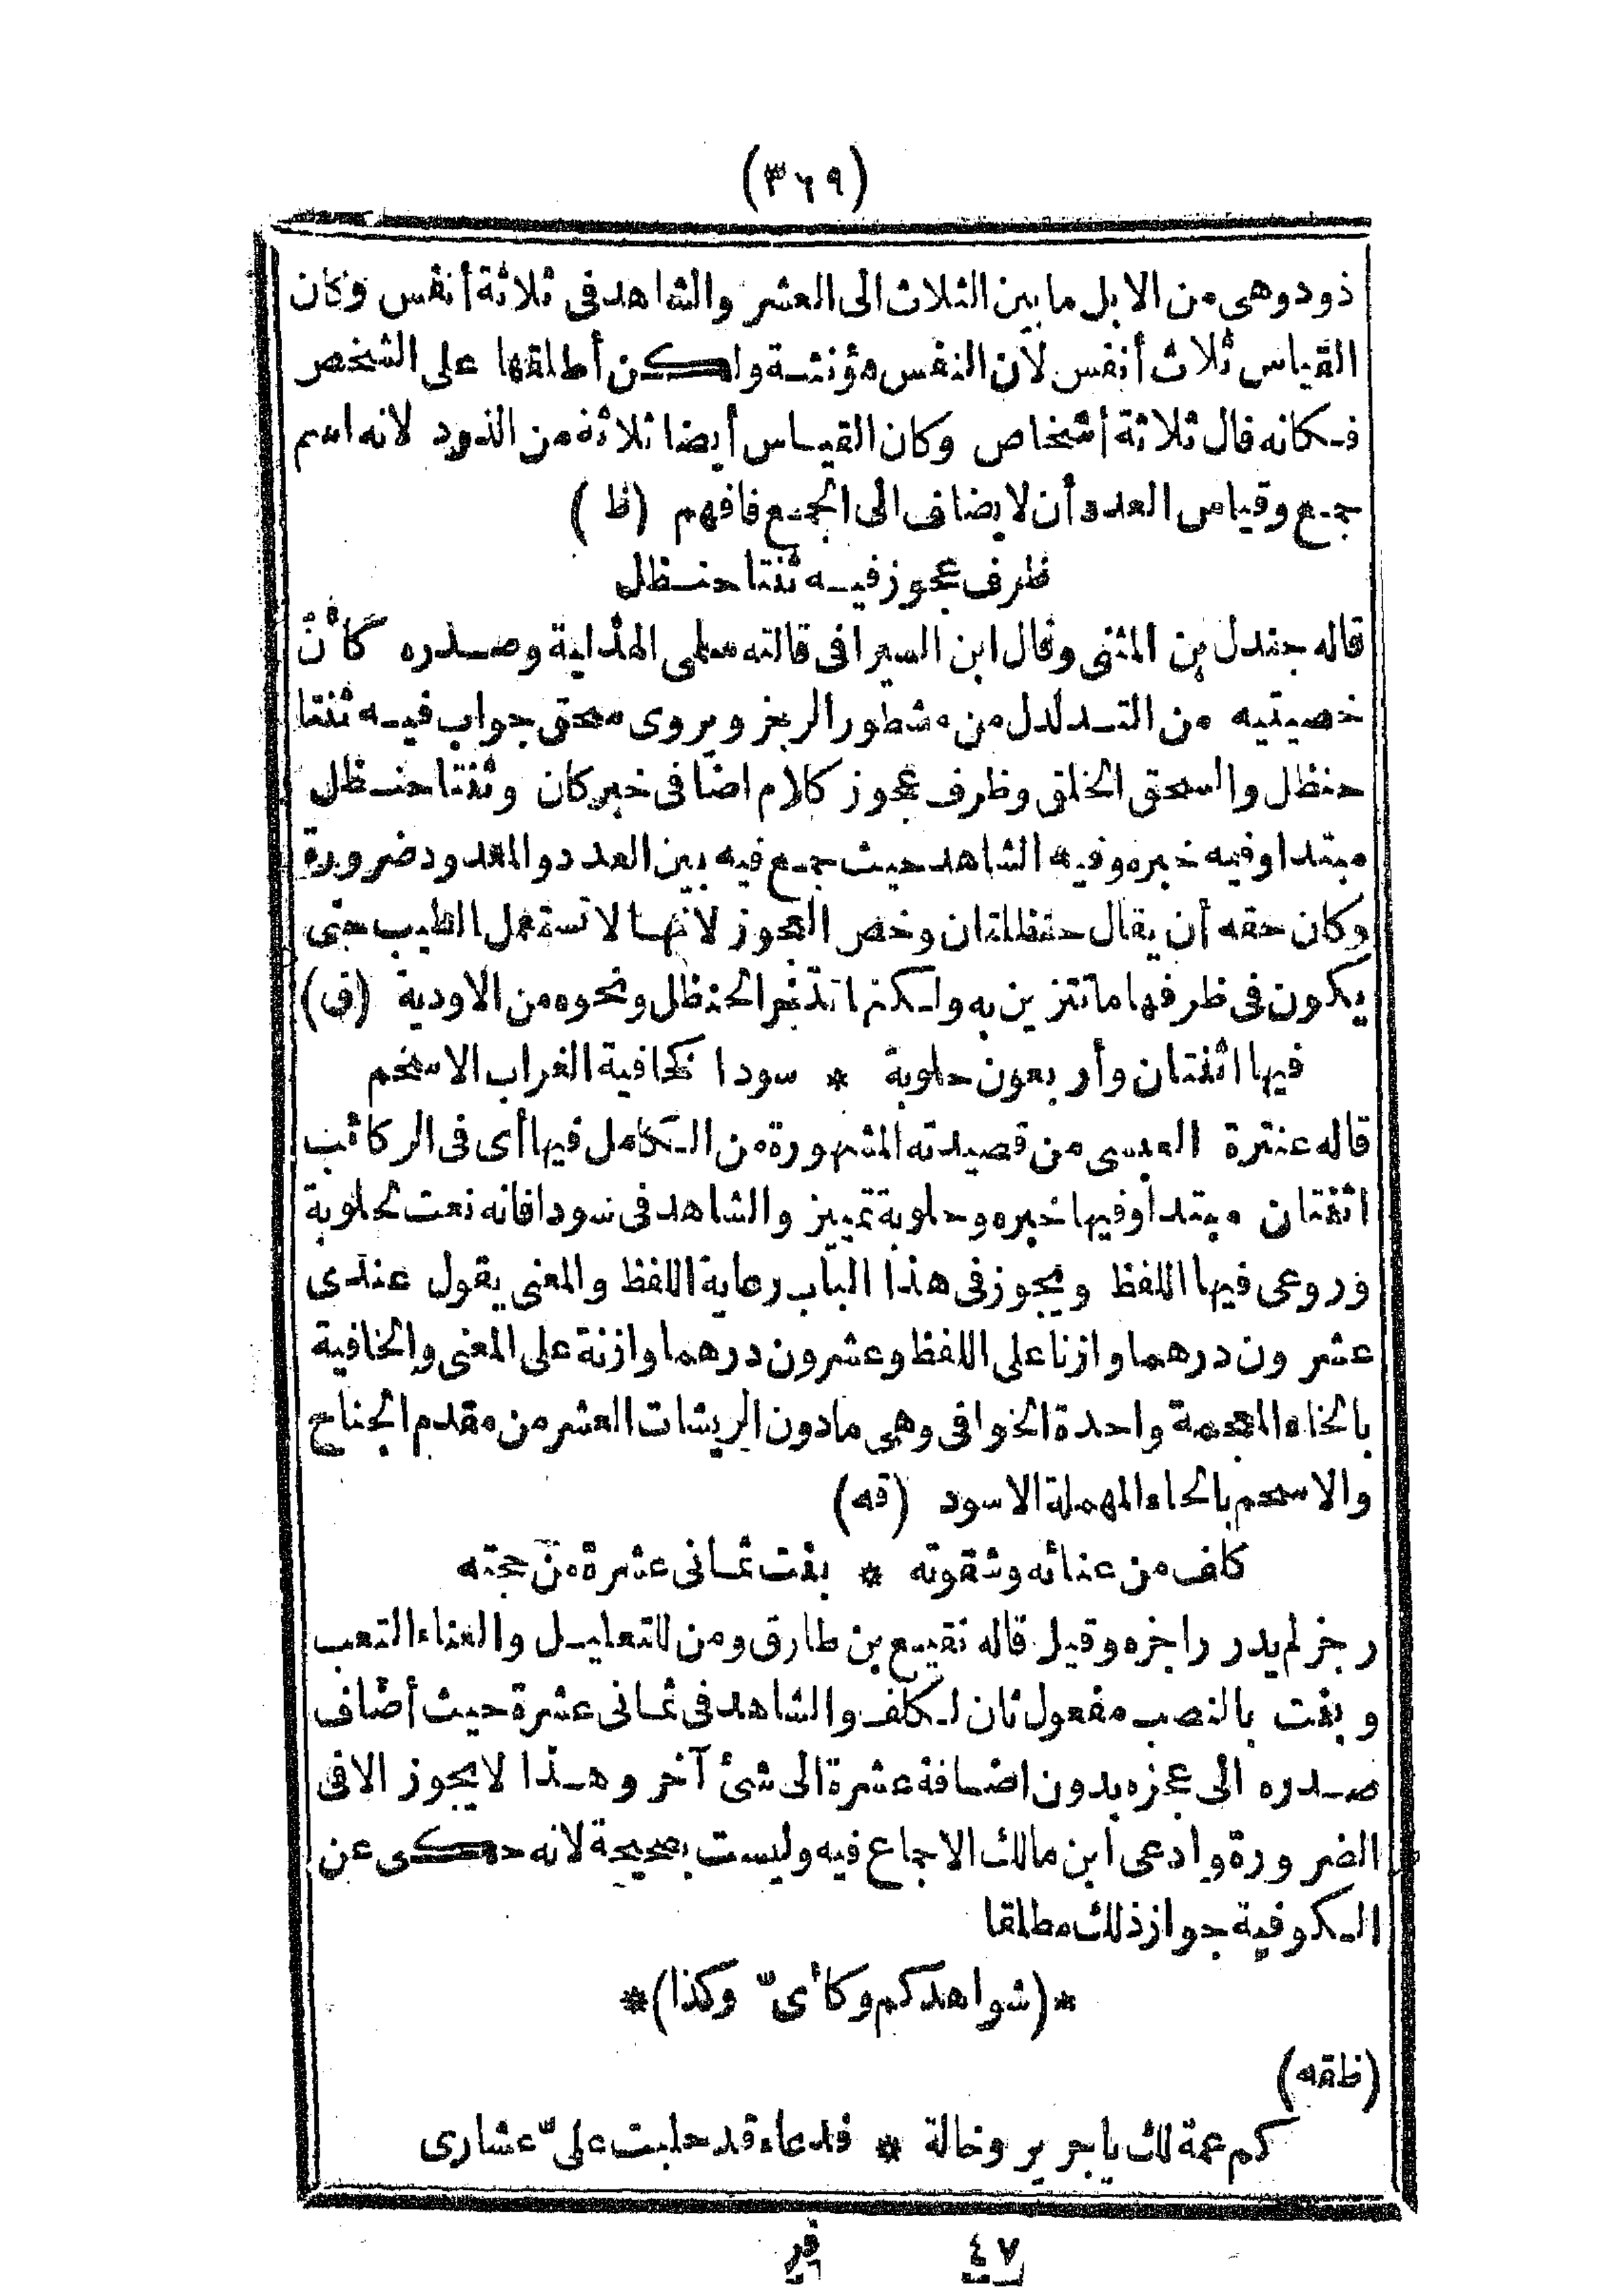 (٣٦٩)
ذود وهى من الابل ما بين الثلاث الى العشر والشاهد فى ثلاثة أنفس وكان
القياس ثلاث أنفس لان النفس مؤنثة ولكن أطلقها على الشخص
فكانه قال ثلاثة أشخاص وكان القياس أيضا ثلاثة من الذود لانه اسم
جمع وقياس العدد أن لا يضاف الى الجمع فافهم (ظ)
ظرف عجوز فيه ثنتا حنظل
قاله جندل بن المثنى وقال ابن السيرافى قالته سلمى الهذلية وصدره كأنّ
خصيتيه من التدلدل من مشطور الرجز ويروى سحق جواب فيه ثنتا
حنظل والسحق الخلق وظرف عجوز كلام اضافى خبر كان وثنتا حنظل
مبتدا وفيه خبره وفيه الشاهد حيث جمع فيه بين العدد والمعدود ضرورة
وكان حقه أن يقال حنظلتان وخص العجوز لانها لا تستعمل الطيب حتى
يكون فى ظرفها ما تتزين به ولكنها تدخر الحنظل ونحوه من الاودية (ق)
فيها اثنتان وأربعون حلوبة * سودا كخافية الغراب الاسحم
قاله عنترة العبسى من قصيدته المشهورة من الكامل فيها أى فى الركائب
اثنتان مبتدأ وفيها خبره وحلوبة تمييز والشاهد فى سودا فانه نعت لحلوبة
وروعى فيها اللفظ ويجوز فى هذا الباب رعاية اللفظ والمعنى يقول عندى
عشرون درهما وازنا على اللفظ وعشرون درهما وازنة على المعنى والخافية
بالخاء المعجمة واحدة الخوافى وهى ما دون الريشات العشر من مقدم الجناح
والاسحم بالحاء المهملة الاسود (قه)
كلف من عنائه وشقوته * بنت ثمانى عشرة من حجته
رجز لم يدر راجزه وقيل قاله نقيع بن طارق ومن للتعليل والعناء التعب
وبنت بالنصب مفعول ثان لكلف والشاهد فى ثمانى عشرة حيث أضاف
صدره الى عجزه بدون اضافة عشرة الى شئ آخر وهذا لا يجوز الا فى
الضرورة وادعى ابن مالك الاجماع فيه وليست بصحيحة لانه حكى عن
الكوفية جواز ذلك مطلقا
*(شواهد كم وكأىّ وكذا)*
(ظقه)
كم عمة لك يا جرير وخالة * فدعاء قد حلبت علىّ عشارى
٤٧ فر